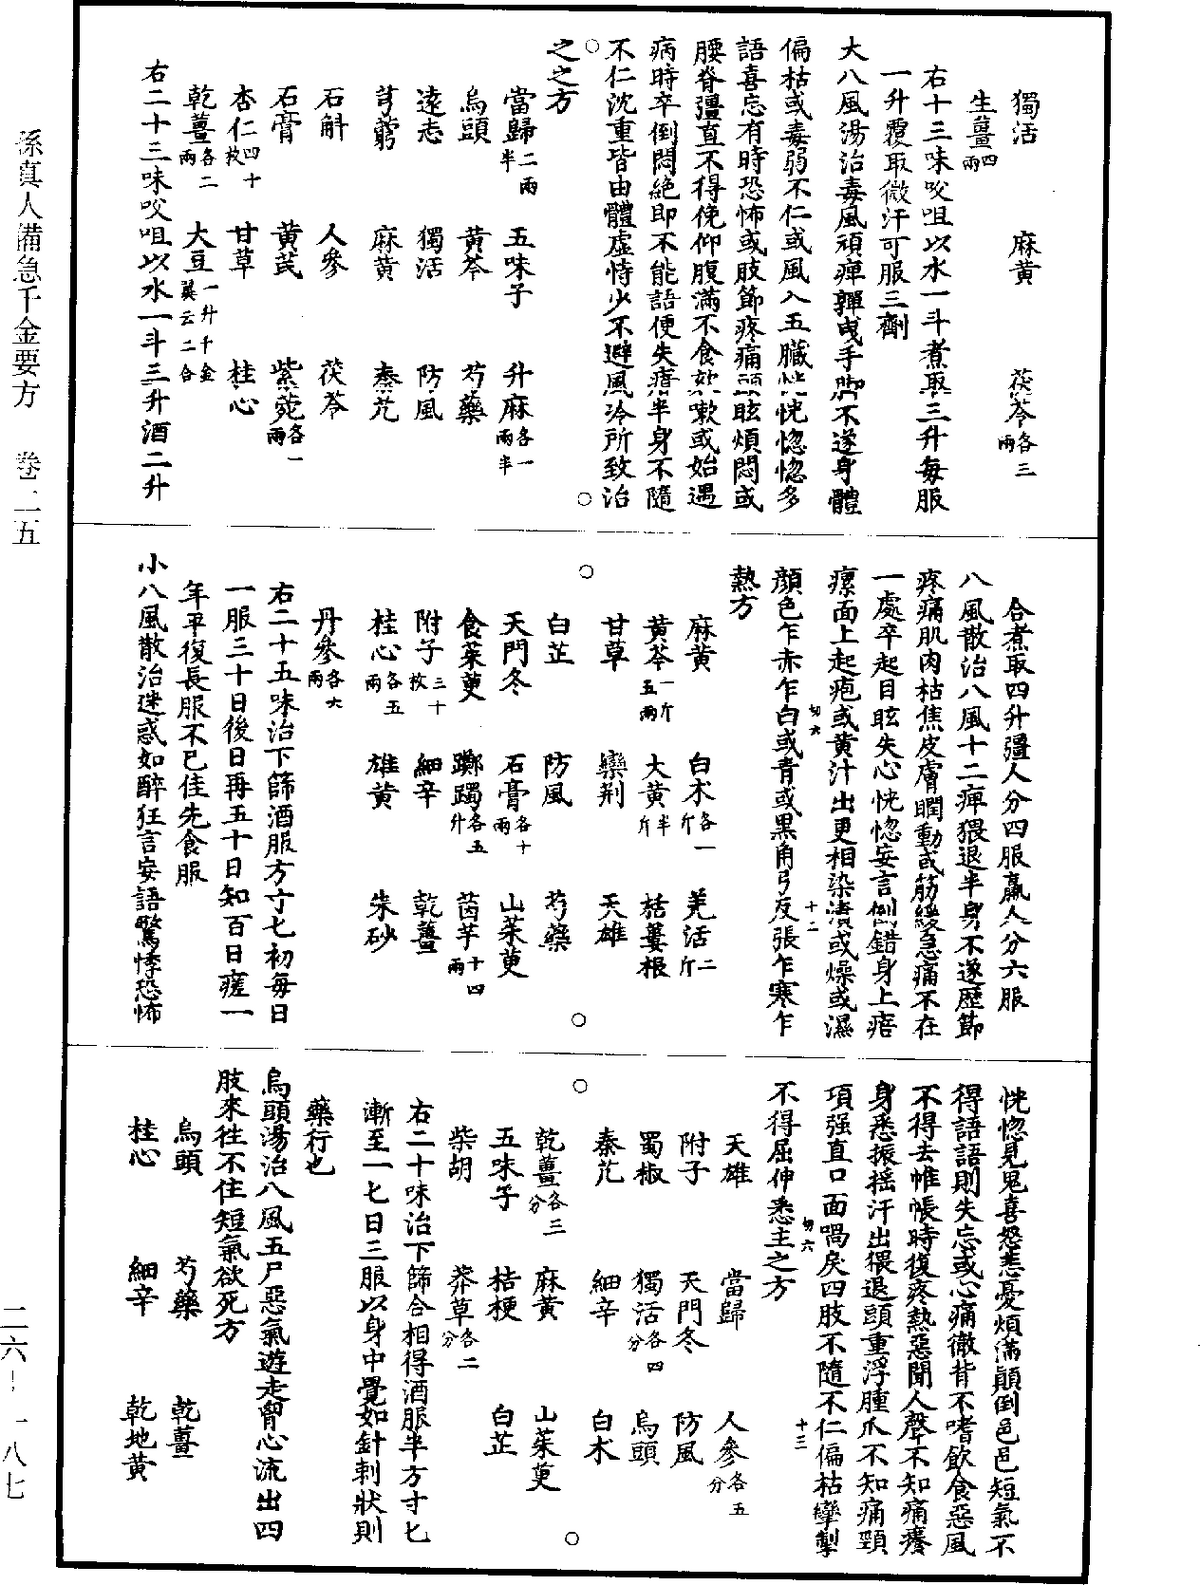 獨活　麻黃　茯苓各三兩
生薑四兩
右十三味㕮咀以水一斗煮取三升每服
一升覆取微汗可服三劑
大八風湯治毒風頑痺嚲曳手脚不遂身體
偏枯或毒弱不仁或風入五臟恍恍惚惚多
語喜忘有時恐怖或肢節疼痛頭眩煩悶或
腰脊彊直不得俛仰腹滿不食欬嗽或始遇
病時卒倒悶絕即不能語便失瘖半身不隨
不仁沈重皆由體虛恃少不避風冷所致治
之之方
當歸二兩半　五味子　升麻各一兩半
烏頭　黃芩　芍藥
遠志　獨活　防風
芎藭　麻黃　秦艽
石斛　人參　茯苓
石膏　黃芪　紫菀各一兩
杏仁四十枚　甘草　桂心
乾薑各二兩　大豆一升千金翼云二合
右二十三味㕮咀以水一斗三升酒二升
合煮取四升彊人分四服羸人分六服
八風散治八風十二痺猥退半身不遂歷節
疼痛肌肉枯焦皮膚瞤動或筋緩急痛不在
一處卒起目眩失心恍惚妄言倒錯身上瘖
瘰面上起疱或黃汁出更相染漬或燥或濕
顏色乍赤乍白或青或黑角弓反張乍寒乍
熱方
麻黃　白朮各一斤　羌活二斤
黃芩一斤五兩　大黃半斤　栝蔞根
甘草　欒荊　天雄
白芷　防風　芍藥
天門冬　石膏各十兩　山茱萸
食茱萸　躑躅各五升　茵芋十四兩
附子三十枚　細辛　乾薑
桂心各五兩　雄黃　朱砂
丹參各六兩
右二十五味治下篩酒服方寸匕初每日
一服三十日後日再五十日知百日瘥一
年平復長服不已佳先食服
小八風散治迷惑如醉狂言妄語驚悸恐怖
恍惚見鬼喜怒悲憂煩滿顛倒邑邑短氣不
得語語則失忘或心痛徹背不嗜飲食惡風
不得去帷帳時復疼熱惡聞人聲不知痛癢
身悉振搖汗出猥退頭重浮腫爪不知痛頸
項强直口面喎戾四肢不隨不仁偏枯攣掣
不得屈伸悉主之方
天雄　當歸　人參各五分
附子　天門冬　防風
蜀椒　獨活各四分　烏頭
秦艽　細辛　白朮
乾薑各三分　麻黃　山茱萸
五味子　桔梗　白芷
柴胡　莽草各二分
右二十味治下篩合相得酒服半方寸匕
漸至一匕日三服以身中覺如針刺狀則
藥行也
烏頭湯治八風五尸惡氣遊走胷心流出四
肢來往不住短氣欲死方
烏頭　芍藥　乾薑
桂心　細辛　乾地黃
孫真人備急千金要方　卷二五
二六-一八七